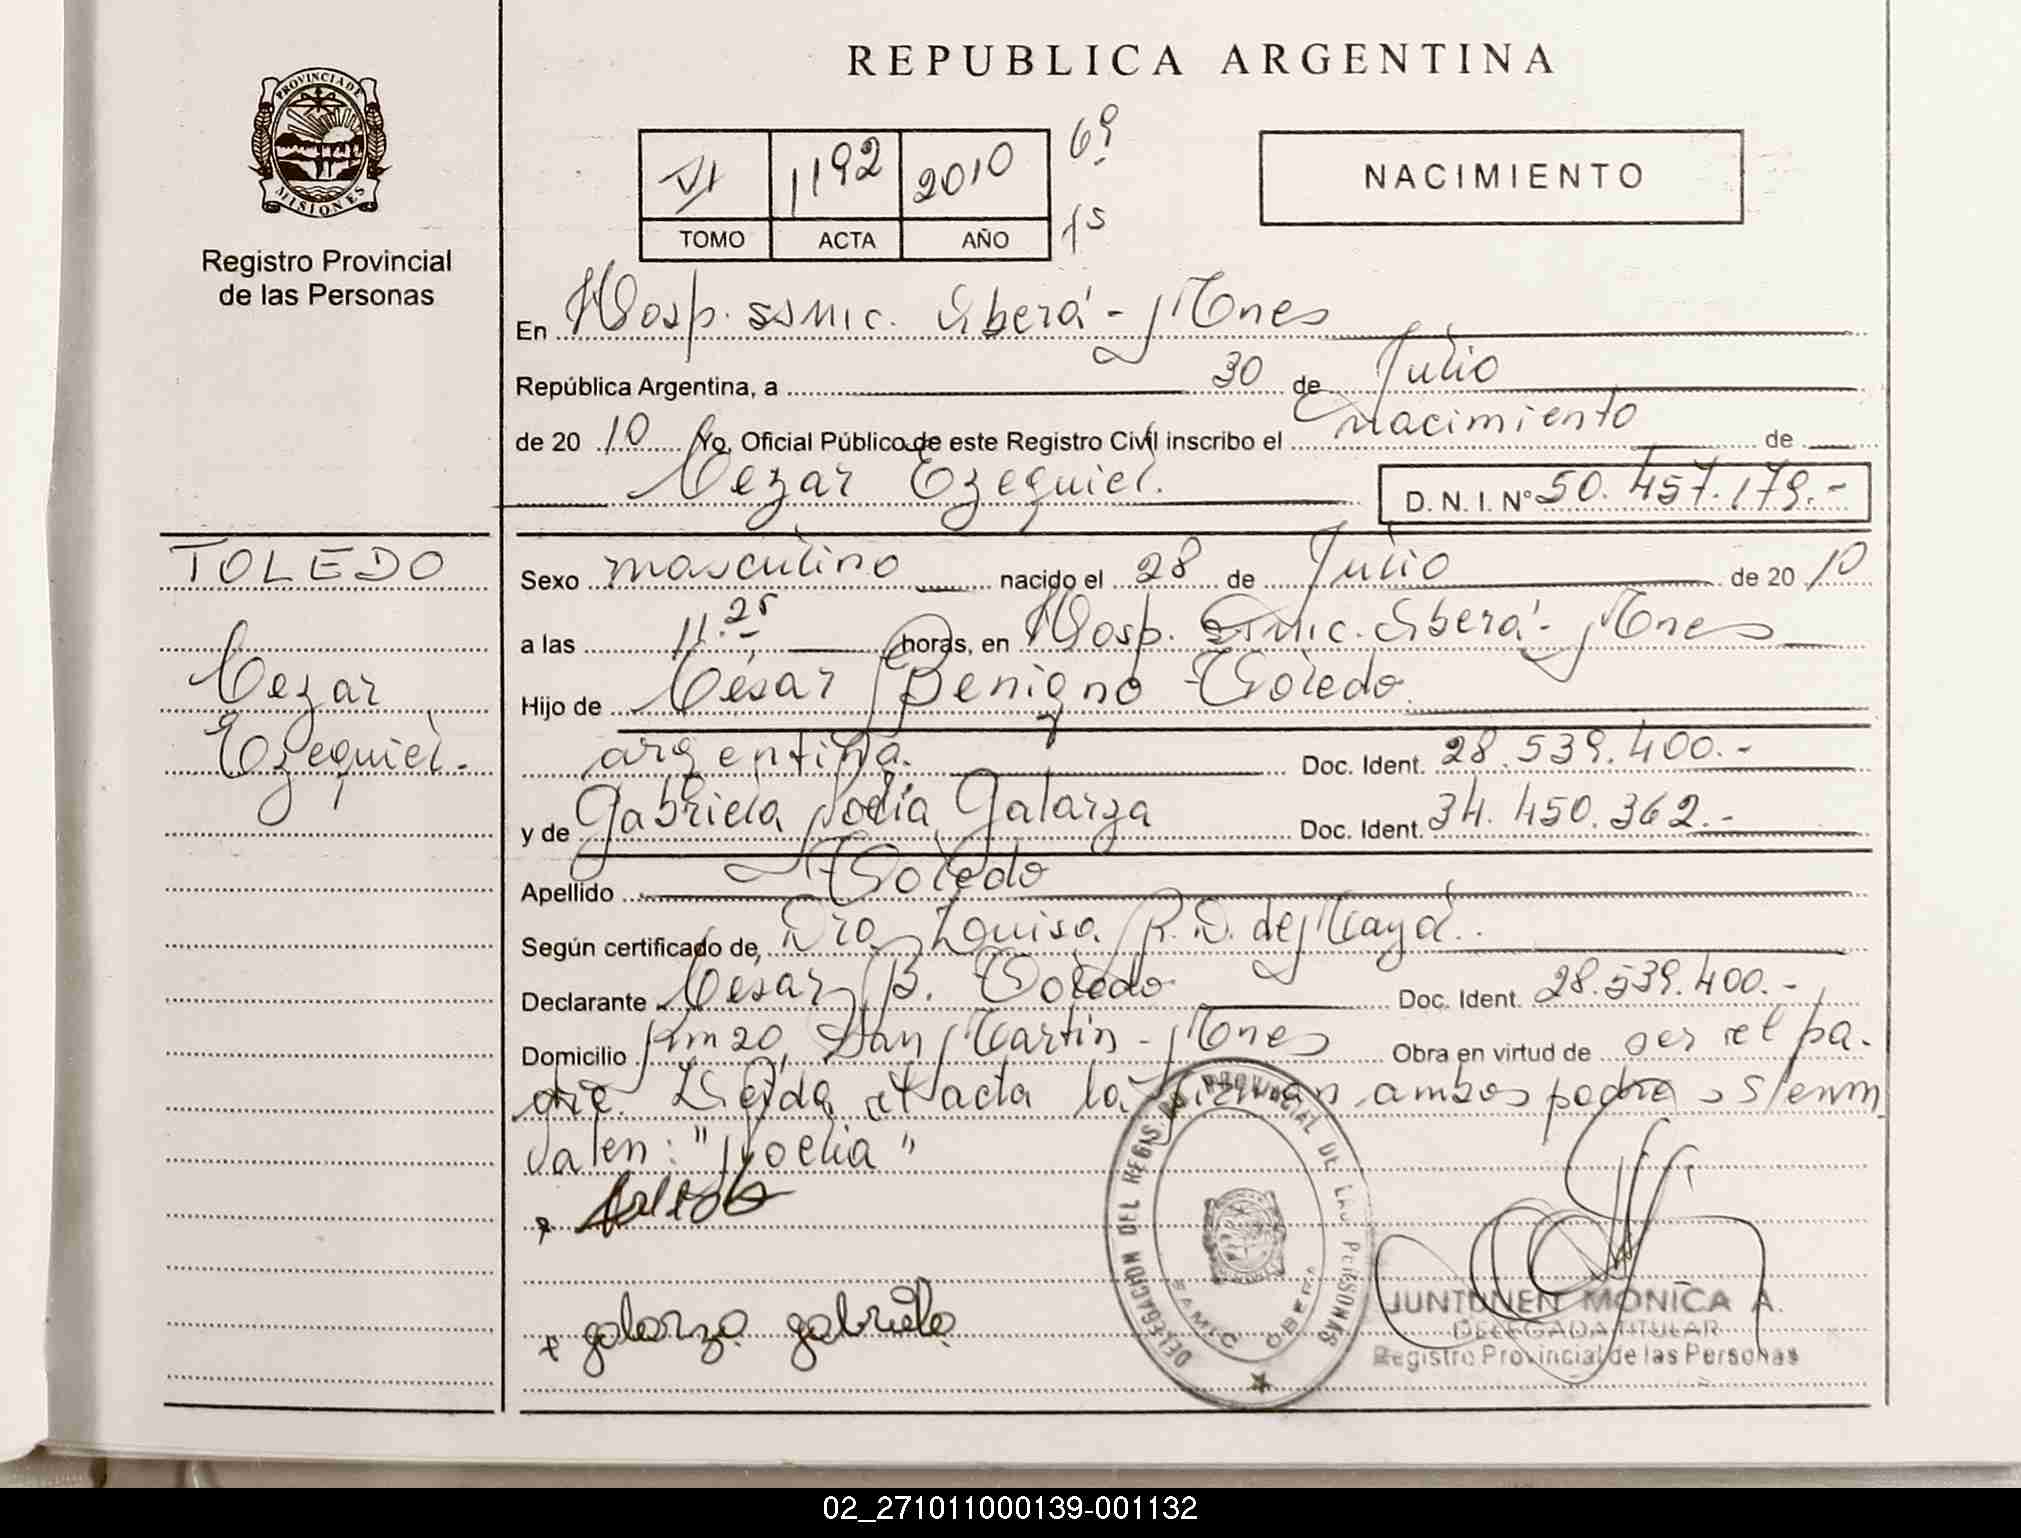 REPUBLICA ARGENTINA
PROVINCIA DE
MISIONES
Registro Provincial
de las Personas
VI 1192 2010 6º
TOMO ACTA AÑO
NACIMIENTO
En Hosp. SSMIC. Oberá - Mnes
República Argentina, a 30 de Julio
de 2010 Yo, Oficial Público de este Registro Civil inscribo el nacimiento de
Cezar Ezequiel.
D. N. I. Nº 50.457.179.-
TOLEDO
Cezar
Ezequiel.
Sexo masculino nacido el 28 de Julio de 2010
a las 11.25 horas, en Hosp. SSMIC. Oberá - Mnes
Hijo de César Benigno Toledo
argentina. Doc. Ident. 28.539.400.-
y de Gabriela Noelia Galarza Doc. Ident. 34.450.362.-
Apellido Toledo
Según certificado de, Dra. Louisa R.D. de Maya.
Declarante César B. Toledo Doc. Ident. 28.539.400.-
Domicilio Km 20, San Martín - Mnes Obra en virtud de ser el pa-
dre. Leída el acta la firman ambos padres S/enm
valen: "Noelia"
galarza gabriela
DELEGACION DEL REGIS. PROVINCIAL DE LAS PERSONAS
SAMIC OBERA
JUNTUNEN MONICA A.
DELEGADA TITULAR
Registro Provincial de las Personas
02_271011000139-001132